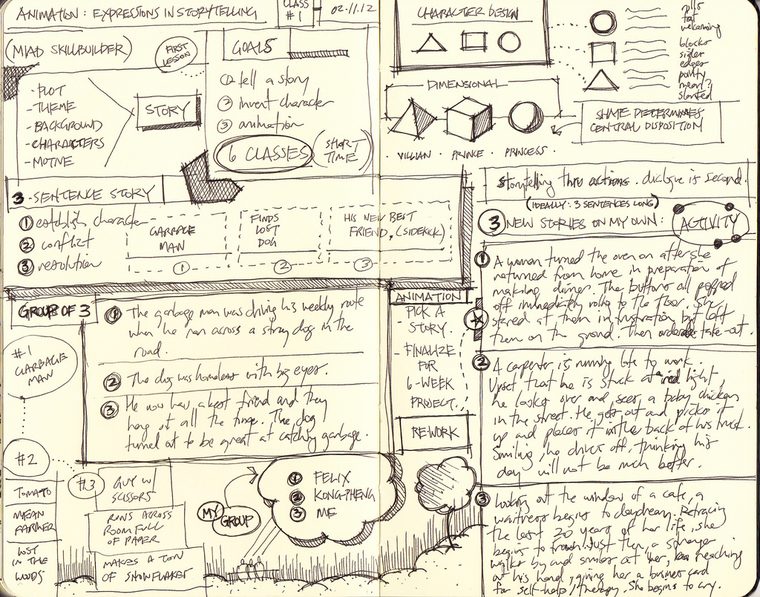 ANIMATION: EXPRESSIONS IN STORYTELLING
CLASS #1
02.11.12
(MIAD SKILLBUILDER)
FIRST LESSON
- PLOT
- THEME
- BACKGROUND
- CHARACTERS
- MOTIVE
STORY
GOALS
① tell a story
② invent character
③ animation
6 CLASSES (SHORT TIME)
3-SENTENCE STORY
① establish character
② conflict
③ resolution
GARBAGE MAN
①
FINDS LOST DOG
②
HIS NEW BEST FRIEND, (SIDEKICK)
③
GROUP OF 3
#1 GARBAGE MAN
① The garbage man was driving his weekly route
when he ran across a stray dog in the
road.
② The dog was homeless with big eyes.
③ He now has a best friend and they
hang out all the time. The dog
turned out to be great at catching garbage.
#2
TOMATO
MEAN FARMER
LOST IN THE WOODS
#3
GUY W/ SCISSORS
RUNS ACROSS ROOM FULL OF PAPER
MAKES A TON OF SNOWFLAKES
MY GROUP
① FELIX
② KONGPHENG
③ ME
ANIMATION
- PICK A STORY
- FINALIZE FOR 6-WEEK PROJECT.
REWORK
CHARACTER DESIGN
fat
welcoming
blocker
edges
pointy
slanted
DIMENSIONAL
· VILLIAN · PRINCE · PRINCESS ·
SHAPE DETERMINES
CENTRAL DISPOSITION
Storytelling thru actions. dialogue is second.
(IDEALLY: 3 SENTENCES LONG)
③ NEW STORIES ON MY OWN:
ACTIVITY
① A woman turned the oven on after she
returned from home in preparation of
making dinner. The buttons all popped
off immediately rolling to the floor. She
stared at them in frustration but left
them on the ground, then ordered take-out.
② A carpenter is running late to work.
Upset that he is stuck at a red light,
he looks over and sees a baby chicken
in the street. He gets out and picks it
up and places it in the back of his truck.
Smiling, he drives off, thinking his
day will not be much better.
③ Looking out the window of a cafe, a
waitress begins to daydream. Retracing
the last 20 years of her life, she
begins to frown. Just then, a stranger
walks by and smiles at her, reaching
out his hand, giving her a business card
for self-help/therapy. She begins to cry.